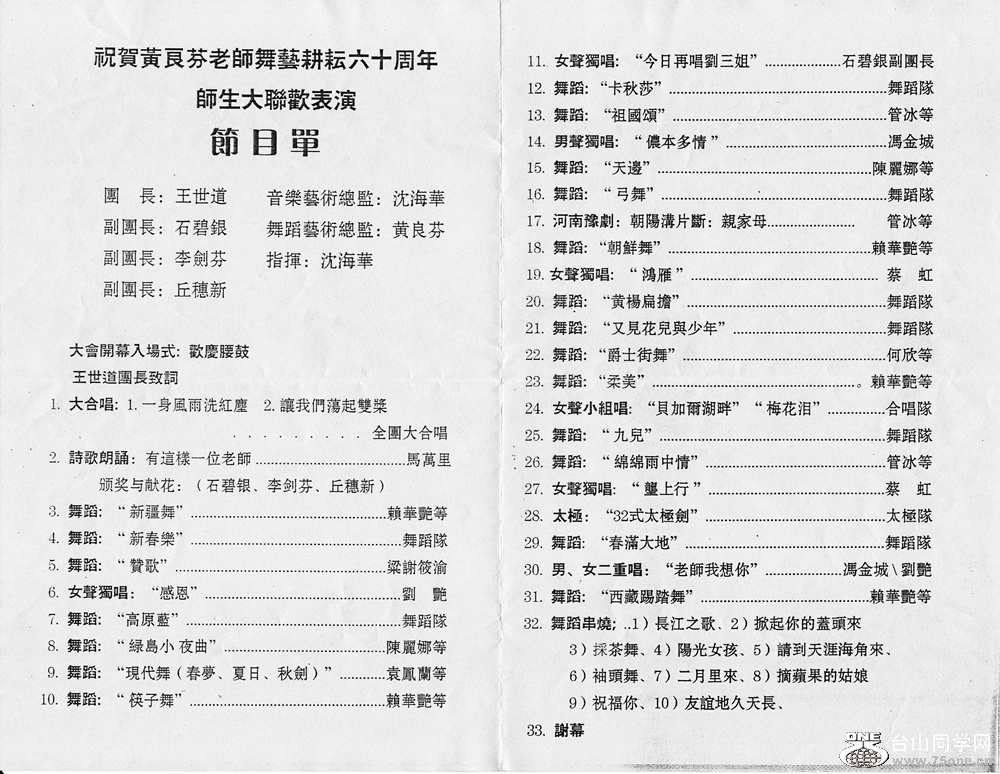 祝賀黃良芬老師舞藝耕耘六十周年
師生大聯歡表演
節目單
團　長：王世道　音樂藝術總監：沈海華
副團長：石碧銀　舞蹈藝術總監：黄良芬
副團長：李劍芬　指揮：沈海華
副團長：丘穗新
大會開幕入場式：歡慶腰鼓
王世道團長致詞
1. 大合唱：1.一身風雨洗紅塵　2.讓我們蕩起雙槳
. . . . . . . . . . 全團大合唱
2. 詩歌朗誦：有這樣一位老師..............................馬萬里
颁奖与献花：（石碧银、李剑芬、丘穗新）
3. 舞蹈：“新疆舞”..............................賴華艷等
4. 舞蹈：“新春樂”..............................舞蹈隊
5. 舞蹈：“贊歌”..............................粱謝筱渝
6. 女聲獨唱：“感恩”..............................劉　艷
7. 舞蹈：“高原藍”..............................舞蹈隊
8. 舞蹈：“緑島小夜曲”..............................陳麗娜等
9. 舞蹈：“現代舞（春夢、夏日、秋劍）”...........袁鳳蘭等
10. 舞蹈：“筷子舞”..............................賴華艷等
11. 女聲獨唱：“今日再唱劉三姐”....................石碧銀副團長
12. 舞蹈：“卡秋莎”..............................舞蹈隊
13. 舞蹈：“祖國頌”..............................管冰等
14. 男聲獨唱：“儂本多情”..............................馮金城
15. 舞蹈：“天邊”..............................陳麗娜等
16. 舞蹈：“弓舞”..............................舞蹈隊
17. 河南豫劇：朝陽溝片斷：親家母....................管冰等
18. 舞蹈：“朝鮮舞”..............................賴華艷等
19. 女聲獨唱：“鴻雁”..............................蔡　虹
20. 舞蹈：“黄楊扁擔”..............................舞蹈隊
21. 舞蹈：“又見花兒與少年”..............................舞蹈隊
22. 舞蹈：“爵士街舞”..............................何欣等
23. 舞蹈：“柔美”..............................。賴華艷等
24. 女聲小組唱：“貝加爾湖畔”“梅花泪”.............合唱隊
25. 舞蹈：“九兒”..............................舞蹈隊
26. 舞蹈：“綿綿雨中情”..............................管冰等
27. 女聲獨唱：“壟上行”..............................蔡　虹
28. 太極：“32式太極劍”..............................太極隊
29. 舞蹈：“春滿大地”..............................舞蹈隊
30. 男、女二重唱：“老師我想你”....................馮金城\劉艷
31. 舞蹈：“西藏踢踏舞”..............................賴華艷等
32. 舞蹈串燒；..1）長江之歌、2）掀起你的蓋頭來
3）採茶舞、4）陽光女孩、5）請到天涯海角來、
6）袖頭舞、7）二月里來、8）摘蘋果的姑娘
9）祝福你、10）友誼地久天長、
33. 謝幕
ONE 台山同学网
www.75one.cn